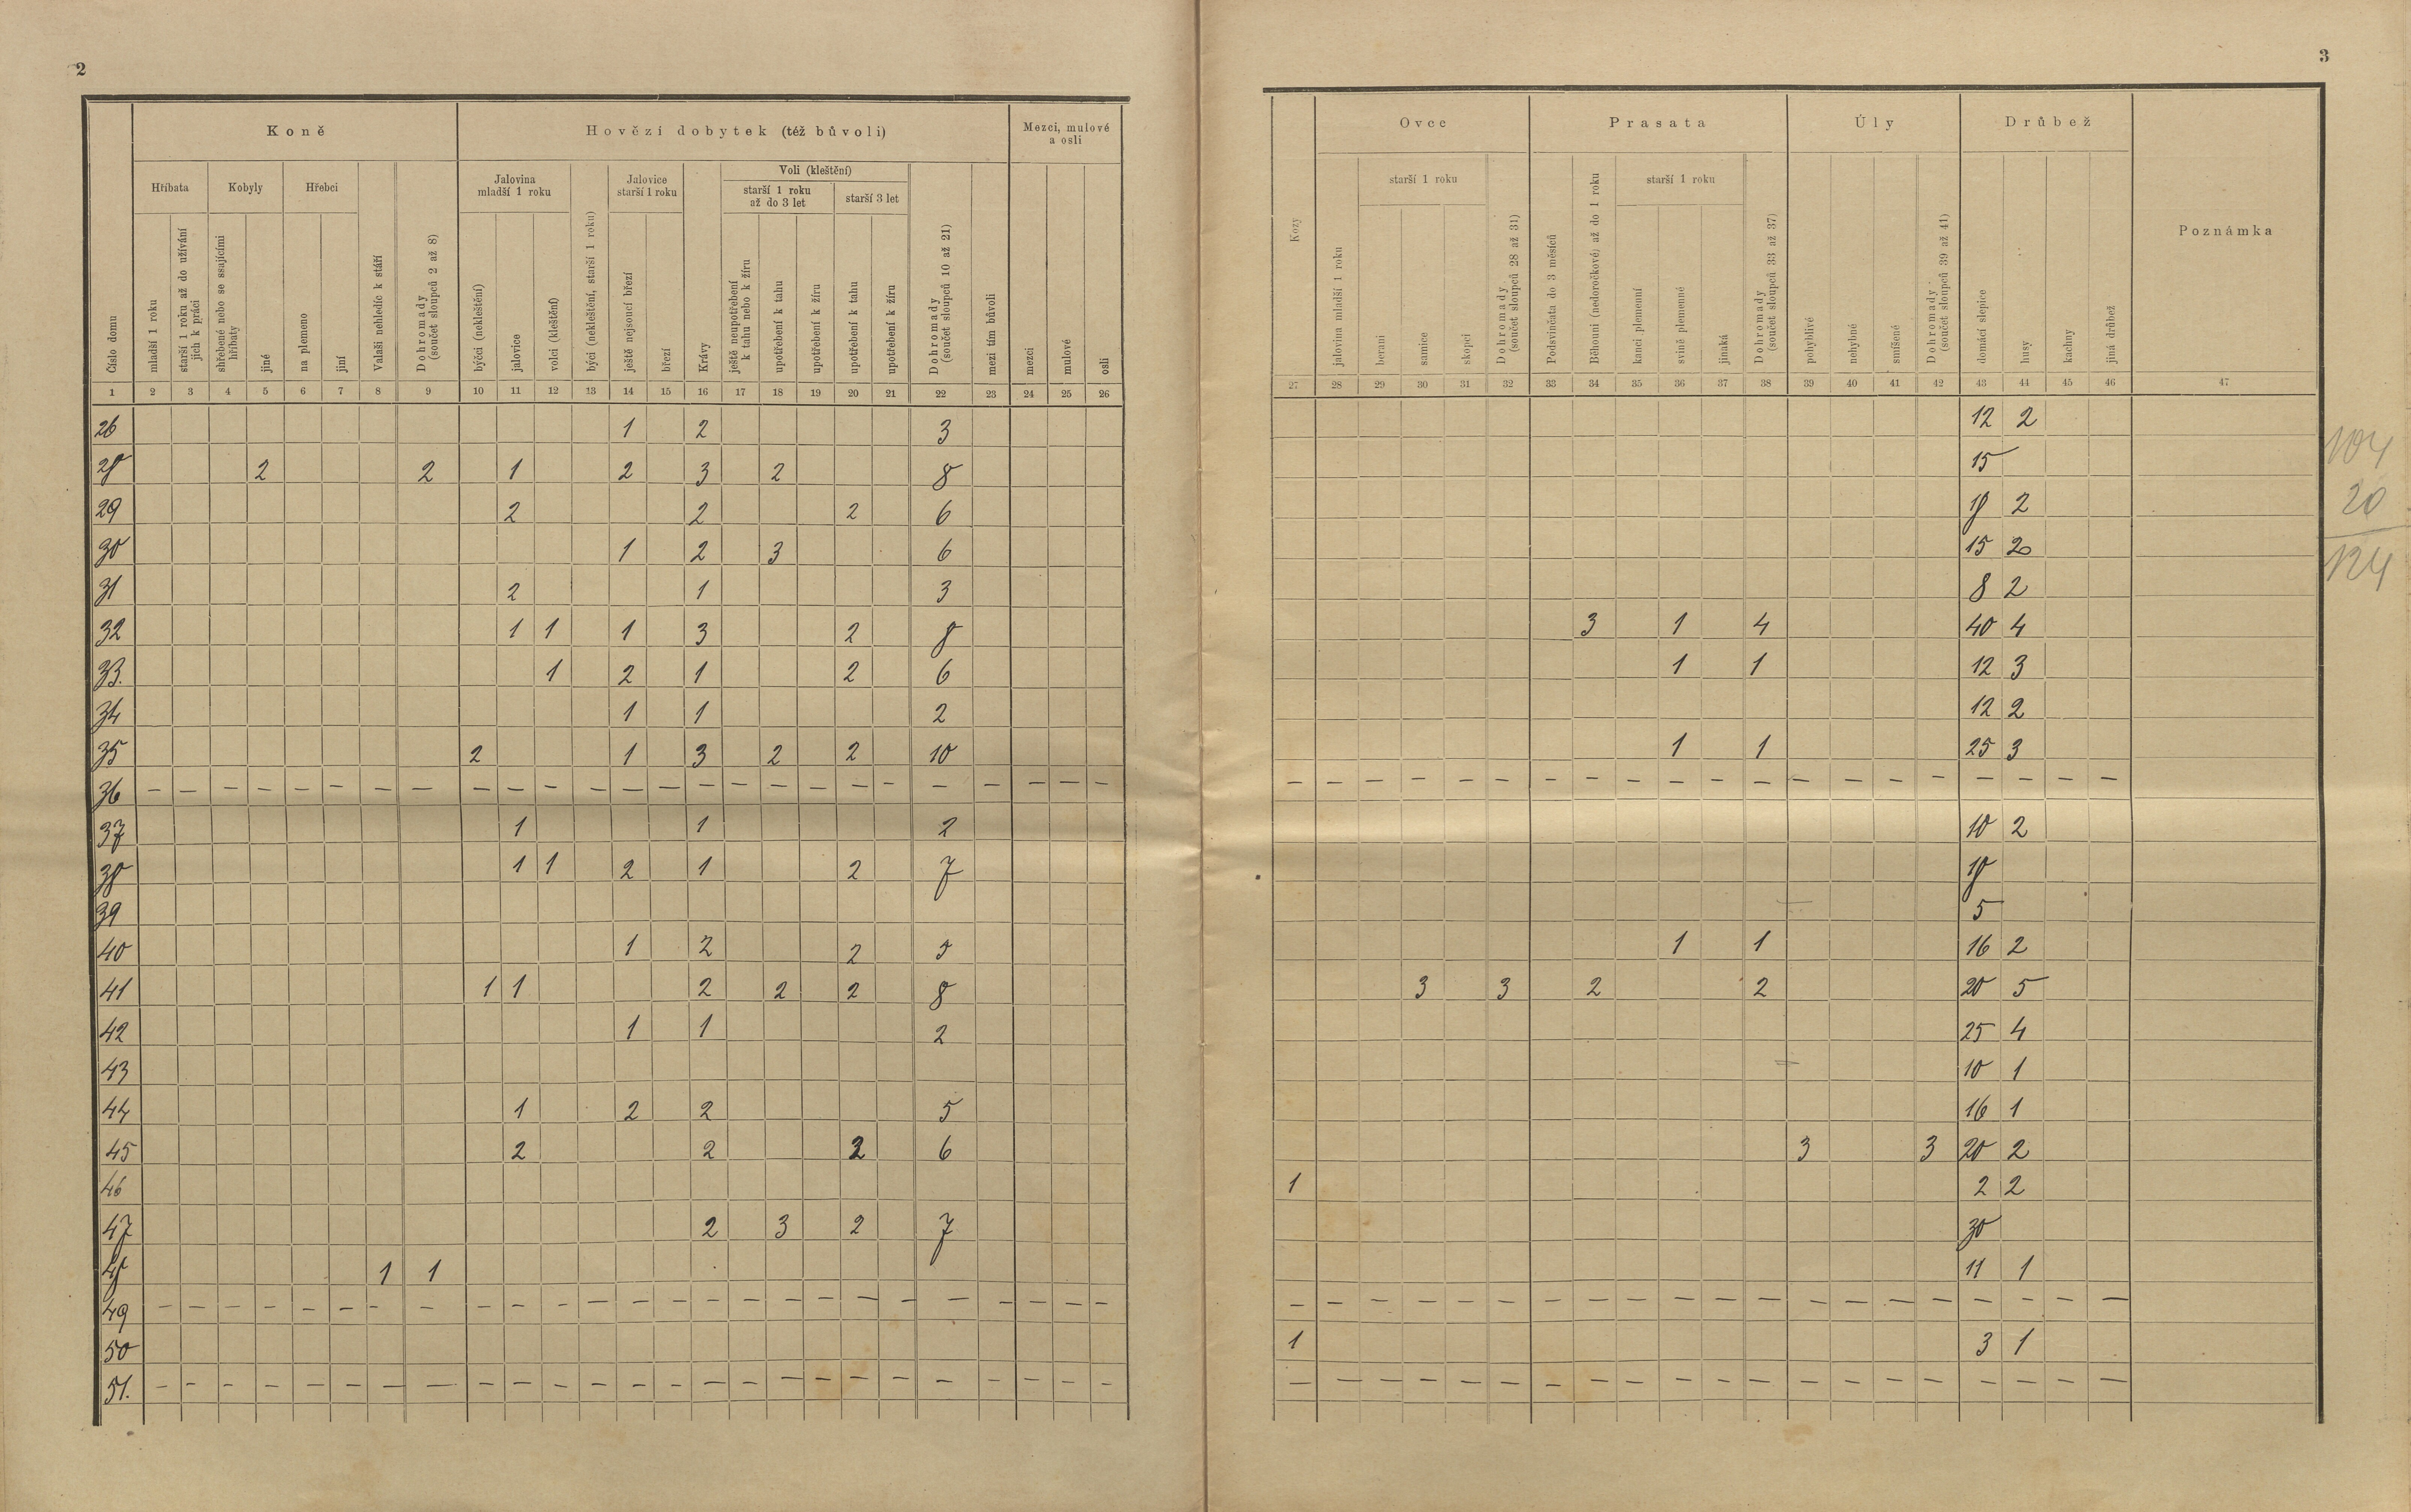 2
3
Koně
Hovězí dobytek (též bůvoli)
Mezci, mulové
a osli
Hříbata
Kobyly
Hřebci
Jalovina
mladší 1 roku
Jalovice
starší 1 roku
Voli (kleštění)
starší 1 roku
až do 3 let
starší 3 let
Číslo domu
mladší 1 roku
starší 1 roku až do užívání
jich k práci
shřebené nebo se ssajícími
hříbaty
jiné
na plemeno
jiní
Valaši nehledíc k stáří
Dohromady
(součet sloupců 2 až 8)
býčci (nekleštění)
jalovice
volci (kleštění)
býci (nekleštění, starší 1 roku)
ještě nejsoucí březí
březí
Krávy
ještě neupotřebení
k tahu nebo k žíru
upotřebení k tahu
upotřebení k žíru
upotřebení k tahu
upotřebení k žíru
Dohromady
(součet sloupců 10 až 21)
mezi tím bůvoli
mezci
mulové
osli
1 2 3 4 5 6 7 8 9 10 11 12 13 14 15 16 17 18 19 20 21 22 23 24 25 26
26 1 2 3
28 2 2 1 2 3 2 8
29 2 2 2 6
30 1 2 3 6
31 2 1 3
32 1 1 1 3 2 8
33. 1 2 1 2 6
34 1 1 2
35 2 1 3 2 2 10
36 – – – – – – – – – – – – – – – – – – – – – – – – –
37 1 1 2
38 1 1 2 1 2 7
39
40 1 2 2 5
41 1 1 2 2 2 8
42 1 1 2
43
44 1 2 2 5
45 2 2 2 6
46
47 2 3 2 7
48 1 1
49 – – – – – – – – – – – – – – – – – – – – – – – – –
50
51. – – – – – – – – – – – – – – – – – – – – – – – – –
Ovce
Prasata
Úly
Drůbež
starší 1 roku
starší 1 roku
Kozy
jalovina mladší 1 roku
berani
samice
skopci
Dohromady
(součet sloupců 28 až 31)
Podsvinčata do 3 měsíců
Běhouni (nedoročkové) až do 1 roku
kanci plemenní
svině plemenné
jinaká
Dohromady
(součet sloupců 33 až 37)
pohyblivé
nehybné
smíšené
Dohromady
(součet sloupců 39 až 41)
domácí slepice
husy
kachny
jiná drůbež
Poznámka
27 28 29 30 31 32 33 34 35 36 37 38 39 40 41 42 43 44 45 46 47
12 2
15
18 2
15 20
8 2
3 1 4 40 4
1 1 12 3
12 2
1 1 25 3
– – – – – – – – – – – – – – – – – – – –
10 2
18
5
1 1 16 2
3 3 2 2 20 5
25 4
10 1
16 1
3 3 20 2
1 2 2
30
11 1
– – – – – – – – – – – – – – – – – – – –
1 3 1
– – – – – – – – – – – – – – – – – – – –
104
20
124